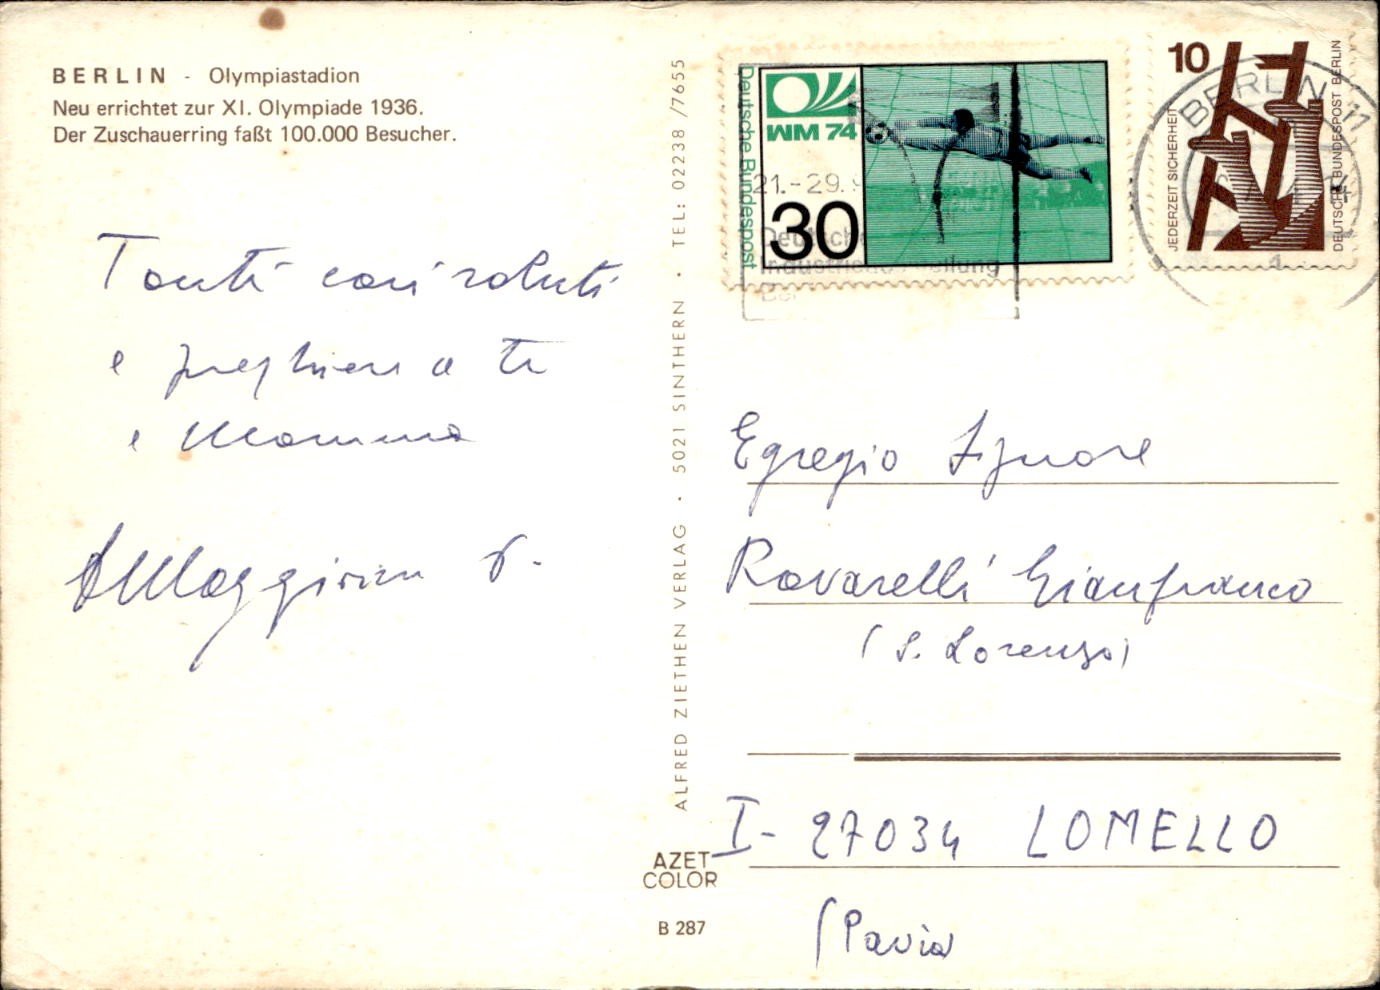 BERLIN - Olympiastadion
Neu errichtet zur XI. Olympiade 1936.
Der Zuschauerring faßt 100.000 Besucher.
Tanti cari saluti
e preghiere a te
e Mamma
ALFRED ZIETHEN VERLAG · 5021 SINTHERN · TEL: 02238 /7655
AZET
COLOR
B 287
Deutsche Bundespost
WM 74
30
10
JEDERZEIT SICHERHEIT
DEUTSCHE BUNDESPOST BERLIN
BERLIN 11
21.-29.
Deutsche
Egregio Signore
Ravarelli Gianfranco
(S. Lorenzo)
I- 27034 LOMELLO
(Pavia